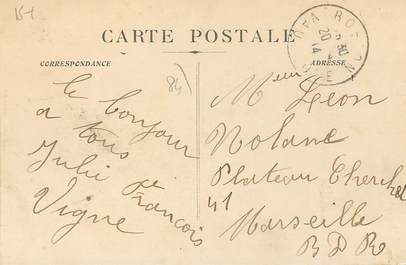 15-1
CARTE POSTALE
CORRESPONDANCE
ADRESSE
84)
le bonjour
a tous
Julie et François
Vigne
Mεur Léon
Nolane
Plateau Cherchel
41
Marseille
B D R